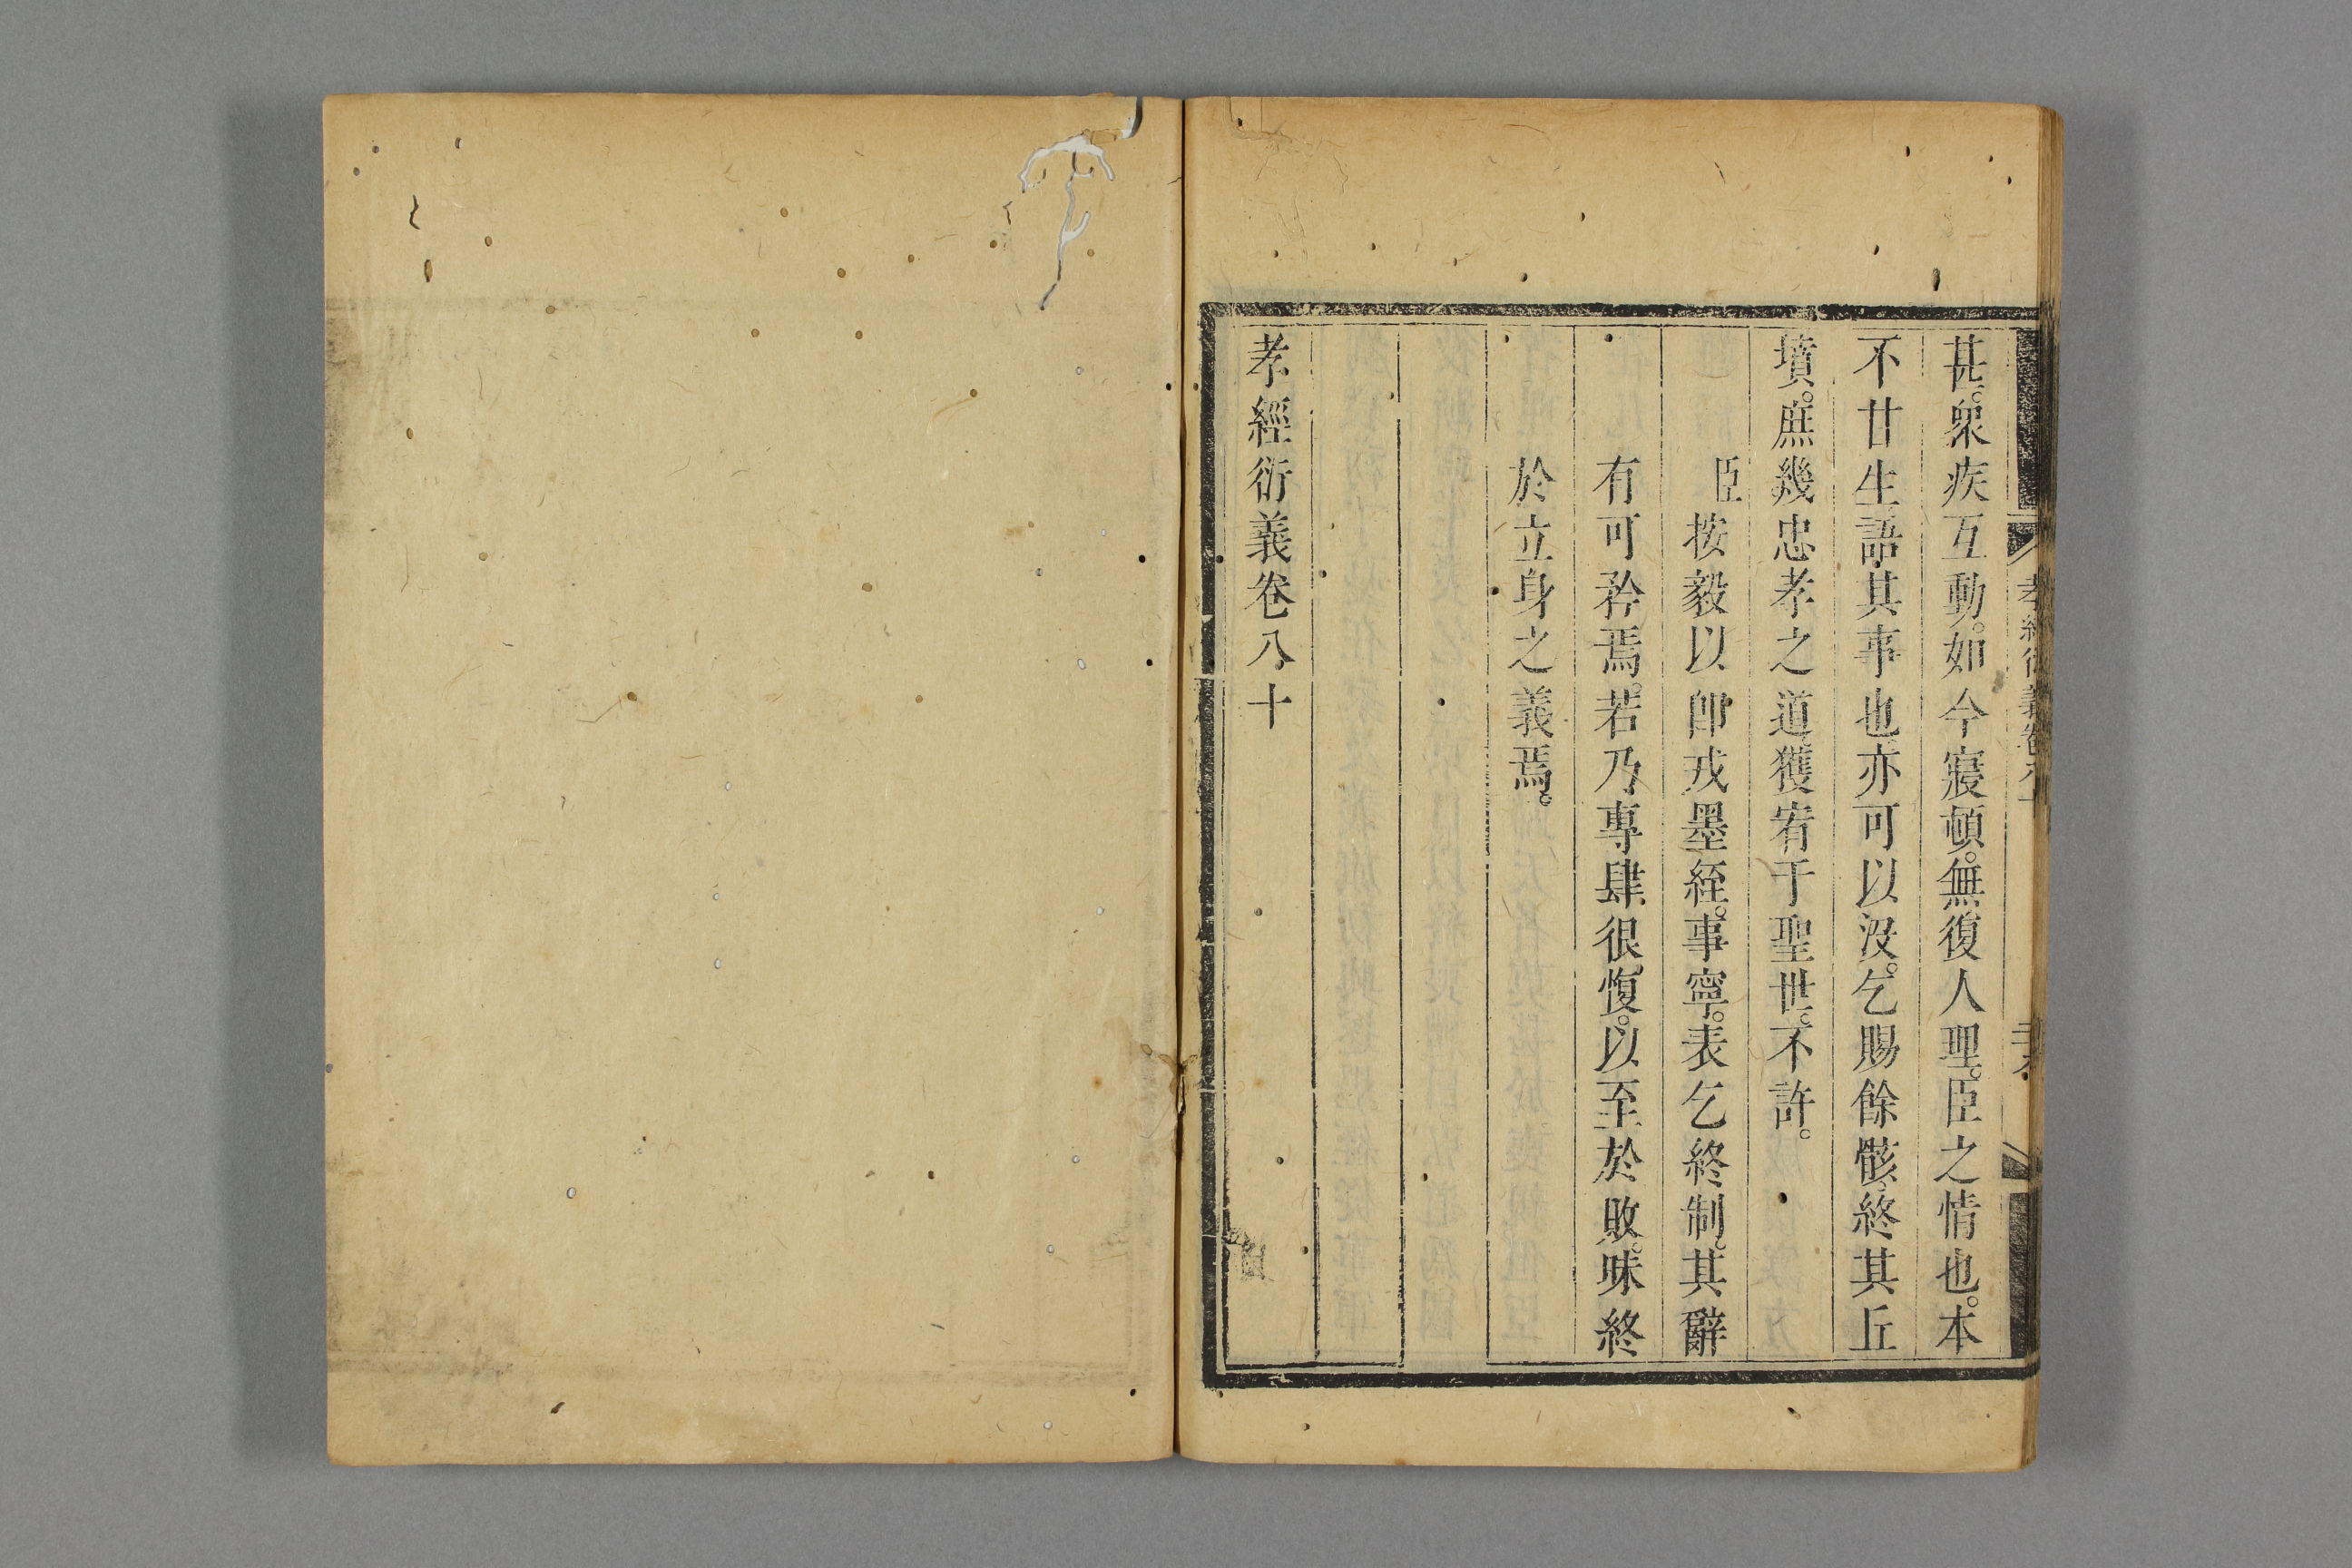 甚。衆疾互動。如今寢頓。無復人理。臣之情也。本
不甘生語其事也亦可以沒。乞賜餘骸終其丘
墳。庶幾忠孝之道獲宥于聖世。不許。
臣按毅以卽戎墨絰。事寧。表乞終制。其辭
有可矜焉。若乃專肆很愎。以至於敗。昧終
於立身之義焉。
孝經衍義卷八十